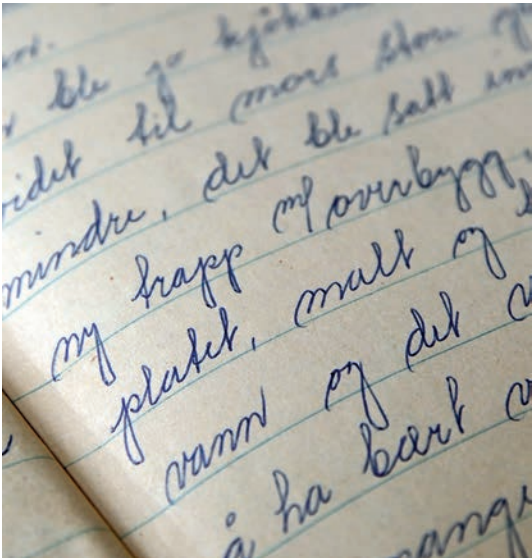 ble jo kjøkken
videt til mors store
mindre, det ble satt inn
ny trapp m/overbygg,
platet, malt og
vann og det v
å ha bært v
ange